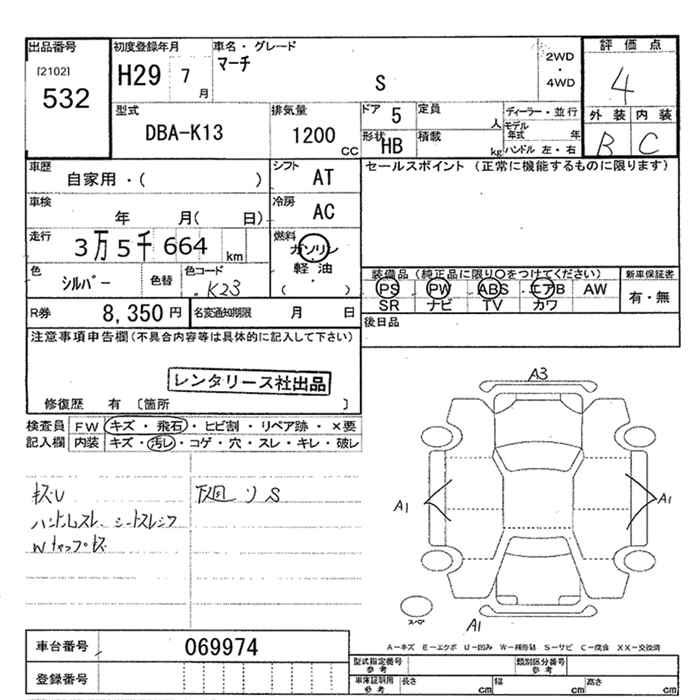 出品番号 初度登録年月 車名・グレード 評価点
[2102] 532 H29 7月 マーチ S 2WD・4WD 4
外装 内装
B C
型式 排気量 ドア 定員 ディーラー・並行
DBA-K13 1200 CC 5 人 モデル年式 年
形状 積載 ハンドル 左・右
HB kg
車歴 シフト セールスポイント (正常に機能するものに限ります)
自家用・( ) AT
車検 年 月( 日) 冷房 AC
走行 3万5千664 km 燃料 ガソリン
軽油
( )
色 シルバー 色替 色コード K23
装備品 (純正品に限り○をつけてください) 新車保証書
PS PW ABS エアB AW 有・無
SR ナビ TV カワ
R券 8,350円 名変通知期限 月 日 後日品
注意事項申告欄(不具合内容等は具体的に記入して下さい)
レンタリース社出品
修復歴 有 〔箇所 〕
検査員 FW キズ・飛石・ヒビ割・リペア跡・×要
記入欄 内装 キズ・汚レ・コゲ・穴・スレ・キレ・破レ
A3
キズU 下廻りS
ハンドルスレ、シートスレシワ
Wキャップキズ
A1 A1
スペア
A1
A-キズ E-エクボ U-凹み W-補修跡 S-サビ C-腐食 XX-交換済
車台番号 069974
型式指定番号 参考 類別区分番号 参考
登録番号
車庫証明用 参考 長さ cm 幅 cm 高さ cm